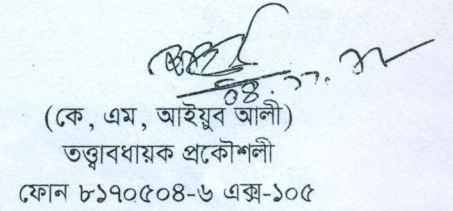 (কে, এম, আইয়ুব আলী)
তত্ত্বাবধায়ক প্রকৌশলী
ফোন ৮১৭০৫০৪-৬ এক্স-১০৫